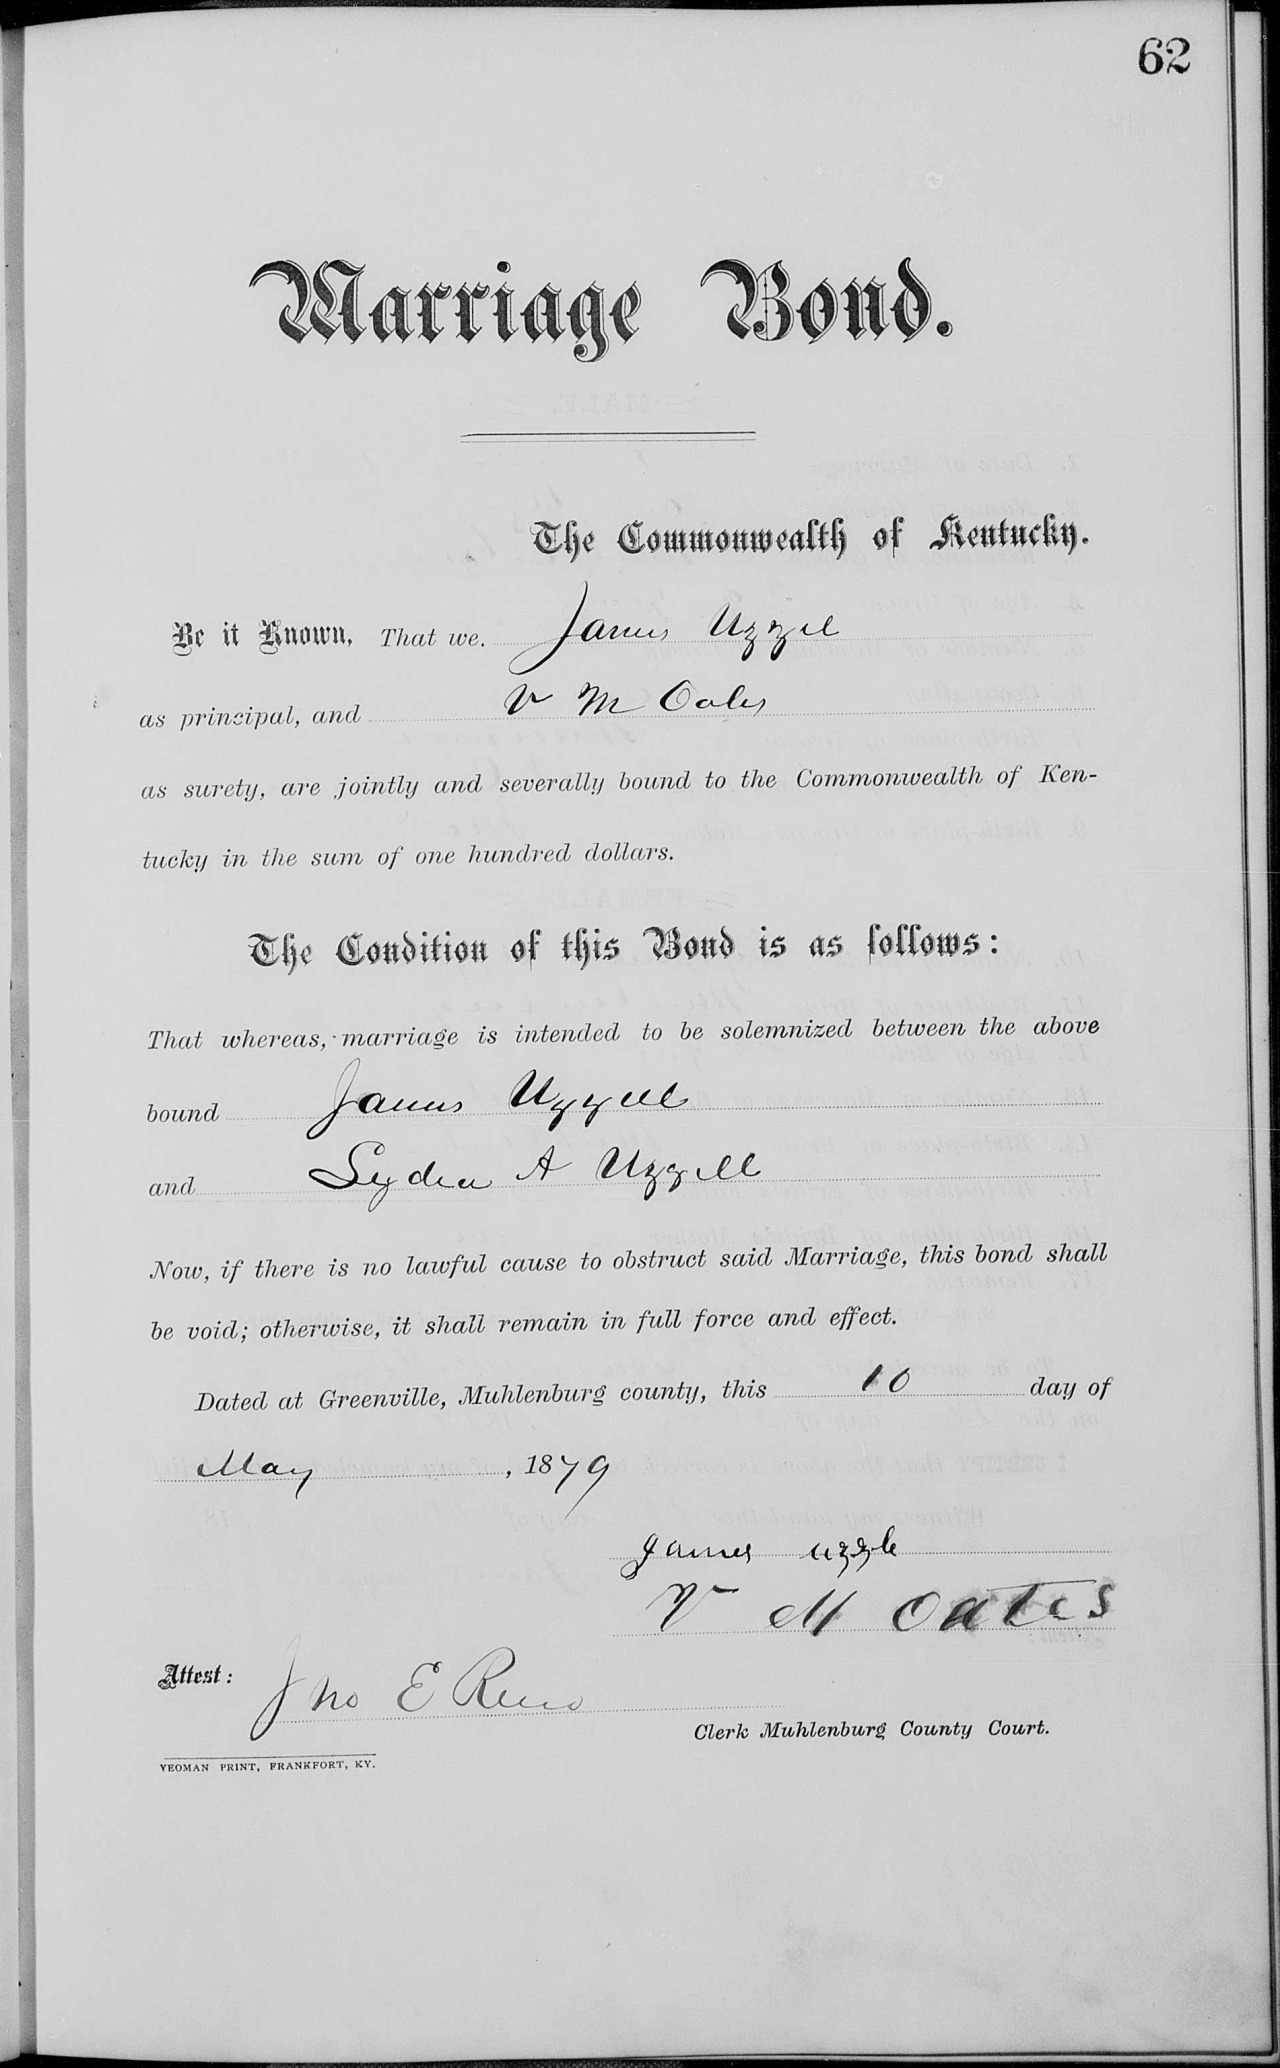 62
Marriage Bond.
The Commonwealth of Kentucky.
Be it Known, That we, James Uzzel
as principal, and V M Oates
as surety, are jointly and severally bound to the Commonwealth of Ken-
tucky in the sum of one hundred dollars.
The Condition of this Bond is as follows:
That whereas, marriage is intended to be solemnized between the above
bound James Uzzell
and Lydia A Uzzell
Now, if there is no lawful cause to obstruct said Marriage, this bond shall
be void; otherwise, it shall remain in full force and effect.
Dated at Greenville, Muhlenburg county, this 10 day of
May, 1879
James Uzzle
V M Oates
Attest: Jno E Reno
Clerk Muhlenburg County Court.
YEOMAN PRINT, FRANKFORT, KY.